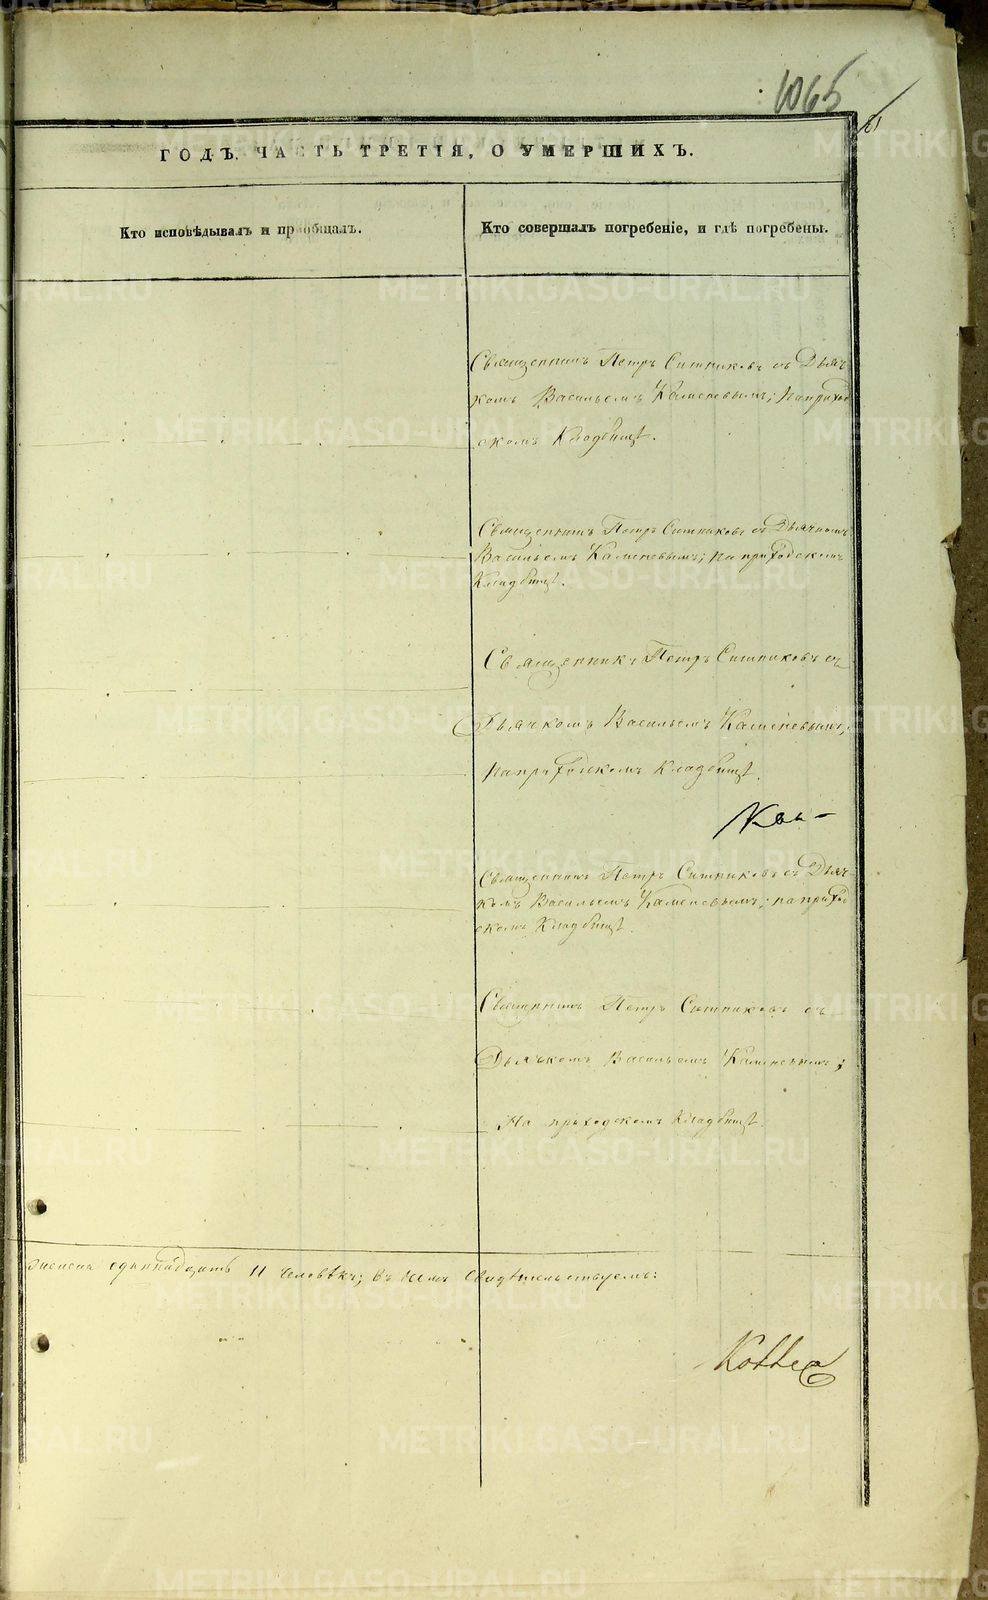 1065
ГОДЪ. ЧАСТЬ ТРЕТІЯ, О УМЕРШИХЪ.
Кто исповѣдывалъ и пріобщалъ.
Кто совершалъ погребеніе, и гдѣ погребены.
Священникъ Петръ Ситниковъ съ Дьяч
комъ Васильемъ Каменевымъ; На приход
скомъ Кладбищѣ.
Священникъ Петръ Ситниковъ съ Дьячкомъ
Васильемъ Каменевымъ; На приходскомъ
Кладбищѣ.
Священникъ Петръ Ситниковъ съ
Дьячкомъ Васильемъ Каменевымъ,
На приходскомъ Кладбищѣ.
Священникъ Петръ Ситниковъ съ Дьяч
комъ Васильемъ Каменевымъ; на приход
скомъ Кладбищѣ.
Священникъ Петръ Ситниковъ съ
Дьячкомъ Васильемъ Каменевымъ;
На приходскомъ Кладбищѣ.
одиннадцать 11 человѣкъ; въ чемъ свидѣтельствуемъ:
METRIKI.GASO-URAL.RU